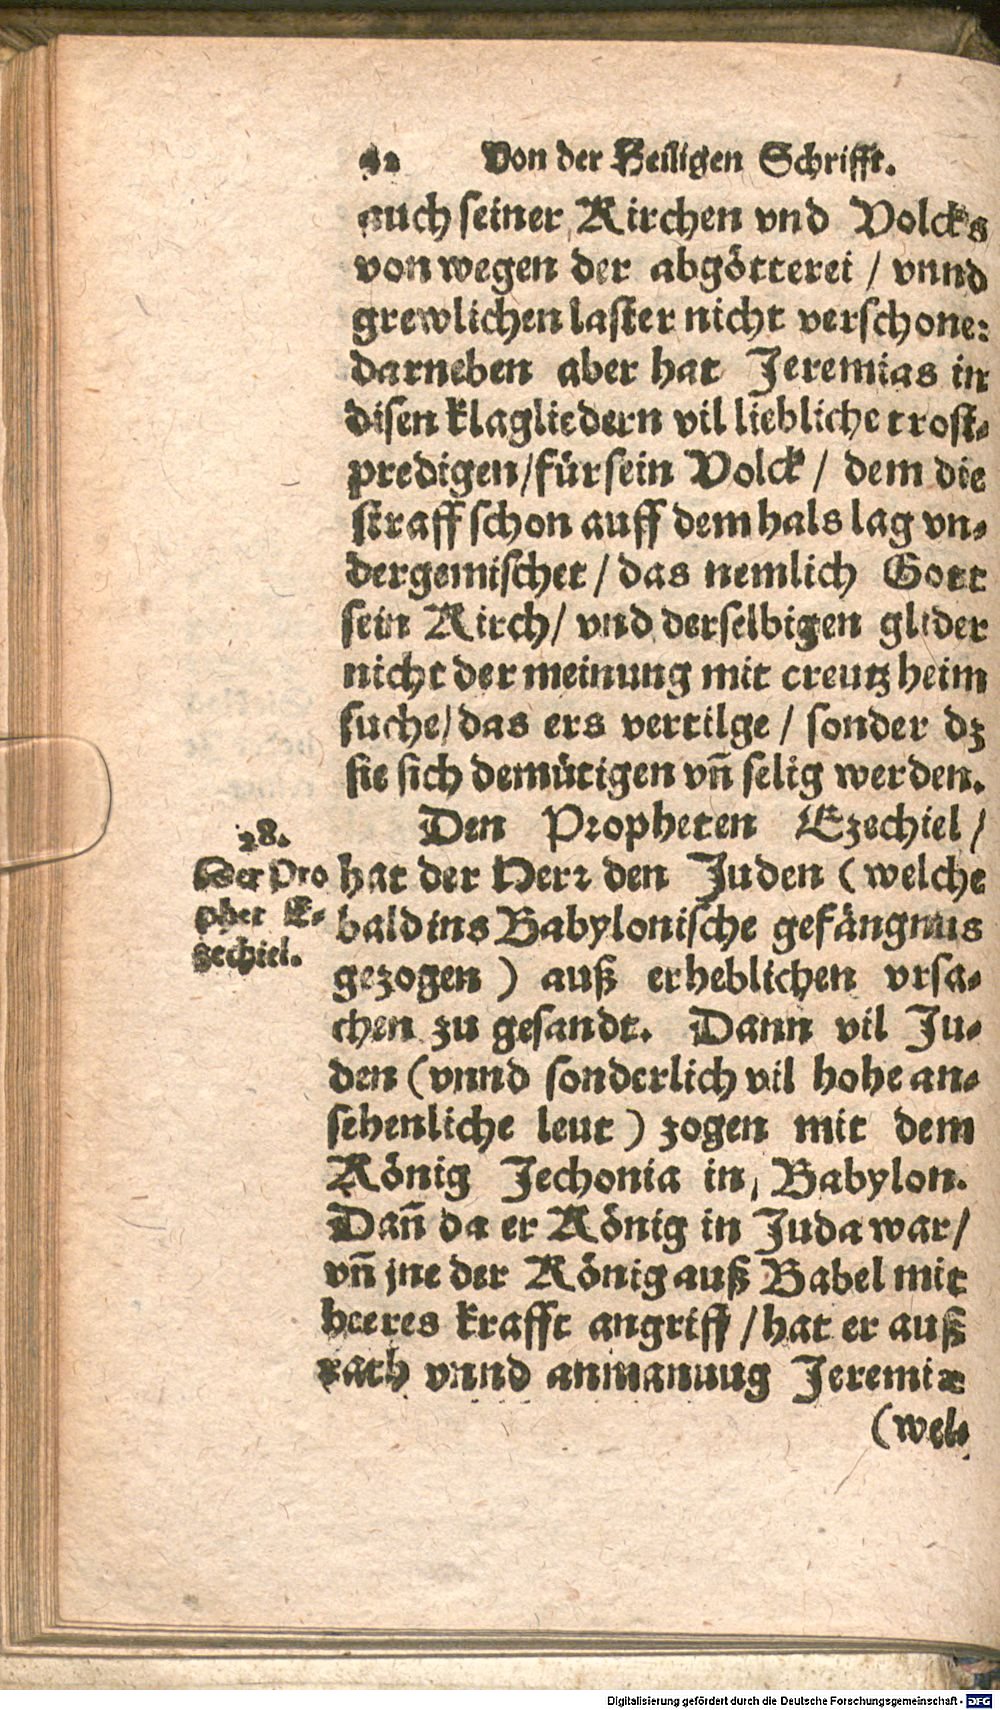 42 Von der Heiligen Schrifft.
auch seiner Kirchen vnd Volcks
von wegen der abgötterei / vnnd
grewlichen laster nicht verschone:
darneben aber hat Jeremias in
disen klagliedern vil liebliche trost-
predigen/für sein Volck / dem die
straff schon auff dem hals lag vn-
dergemischet / das nemlich Gott
sein Kirch/ vnd derselbigen glider
nicht der meinung mit creutz heim
suche/das ers vertilge / sonder dz
sie sich demütigen vñ selig werden.
28.
Der Pro
phet E-
zechiel.
Den Propheten Ezechiel /
hat der Herr den Juden (welche
bald ins Babylonische gefängnus
gezogen ) auß erheblichen vrsa-
chen zu gesandt. Dann vil Ju-
den (vnnd sonderlich vil hohe an-
sehenliche leut ) zogen mit dem
König Jechonia in Babylon.
Dañ da er König in Juda war/
vñ jne der König auß Babel mit
heeres krafft angriff / hat er auß
rath vnnd anmanuug Jeremiæ
(wel-
Digitalisierung gefördert durch die Deutsche Forschungsgemeinschaft - DFG